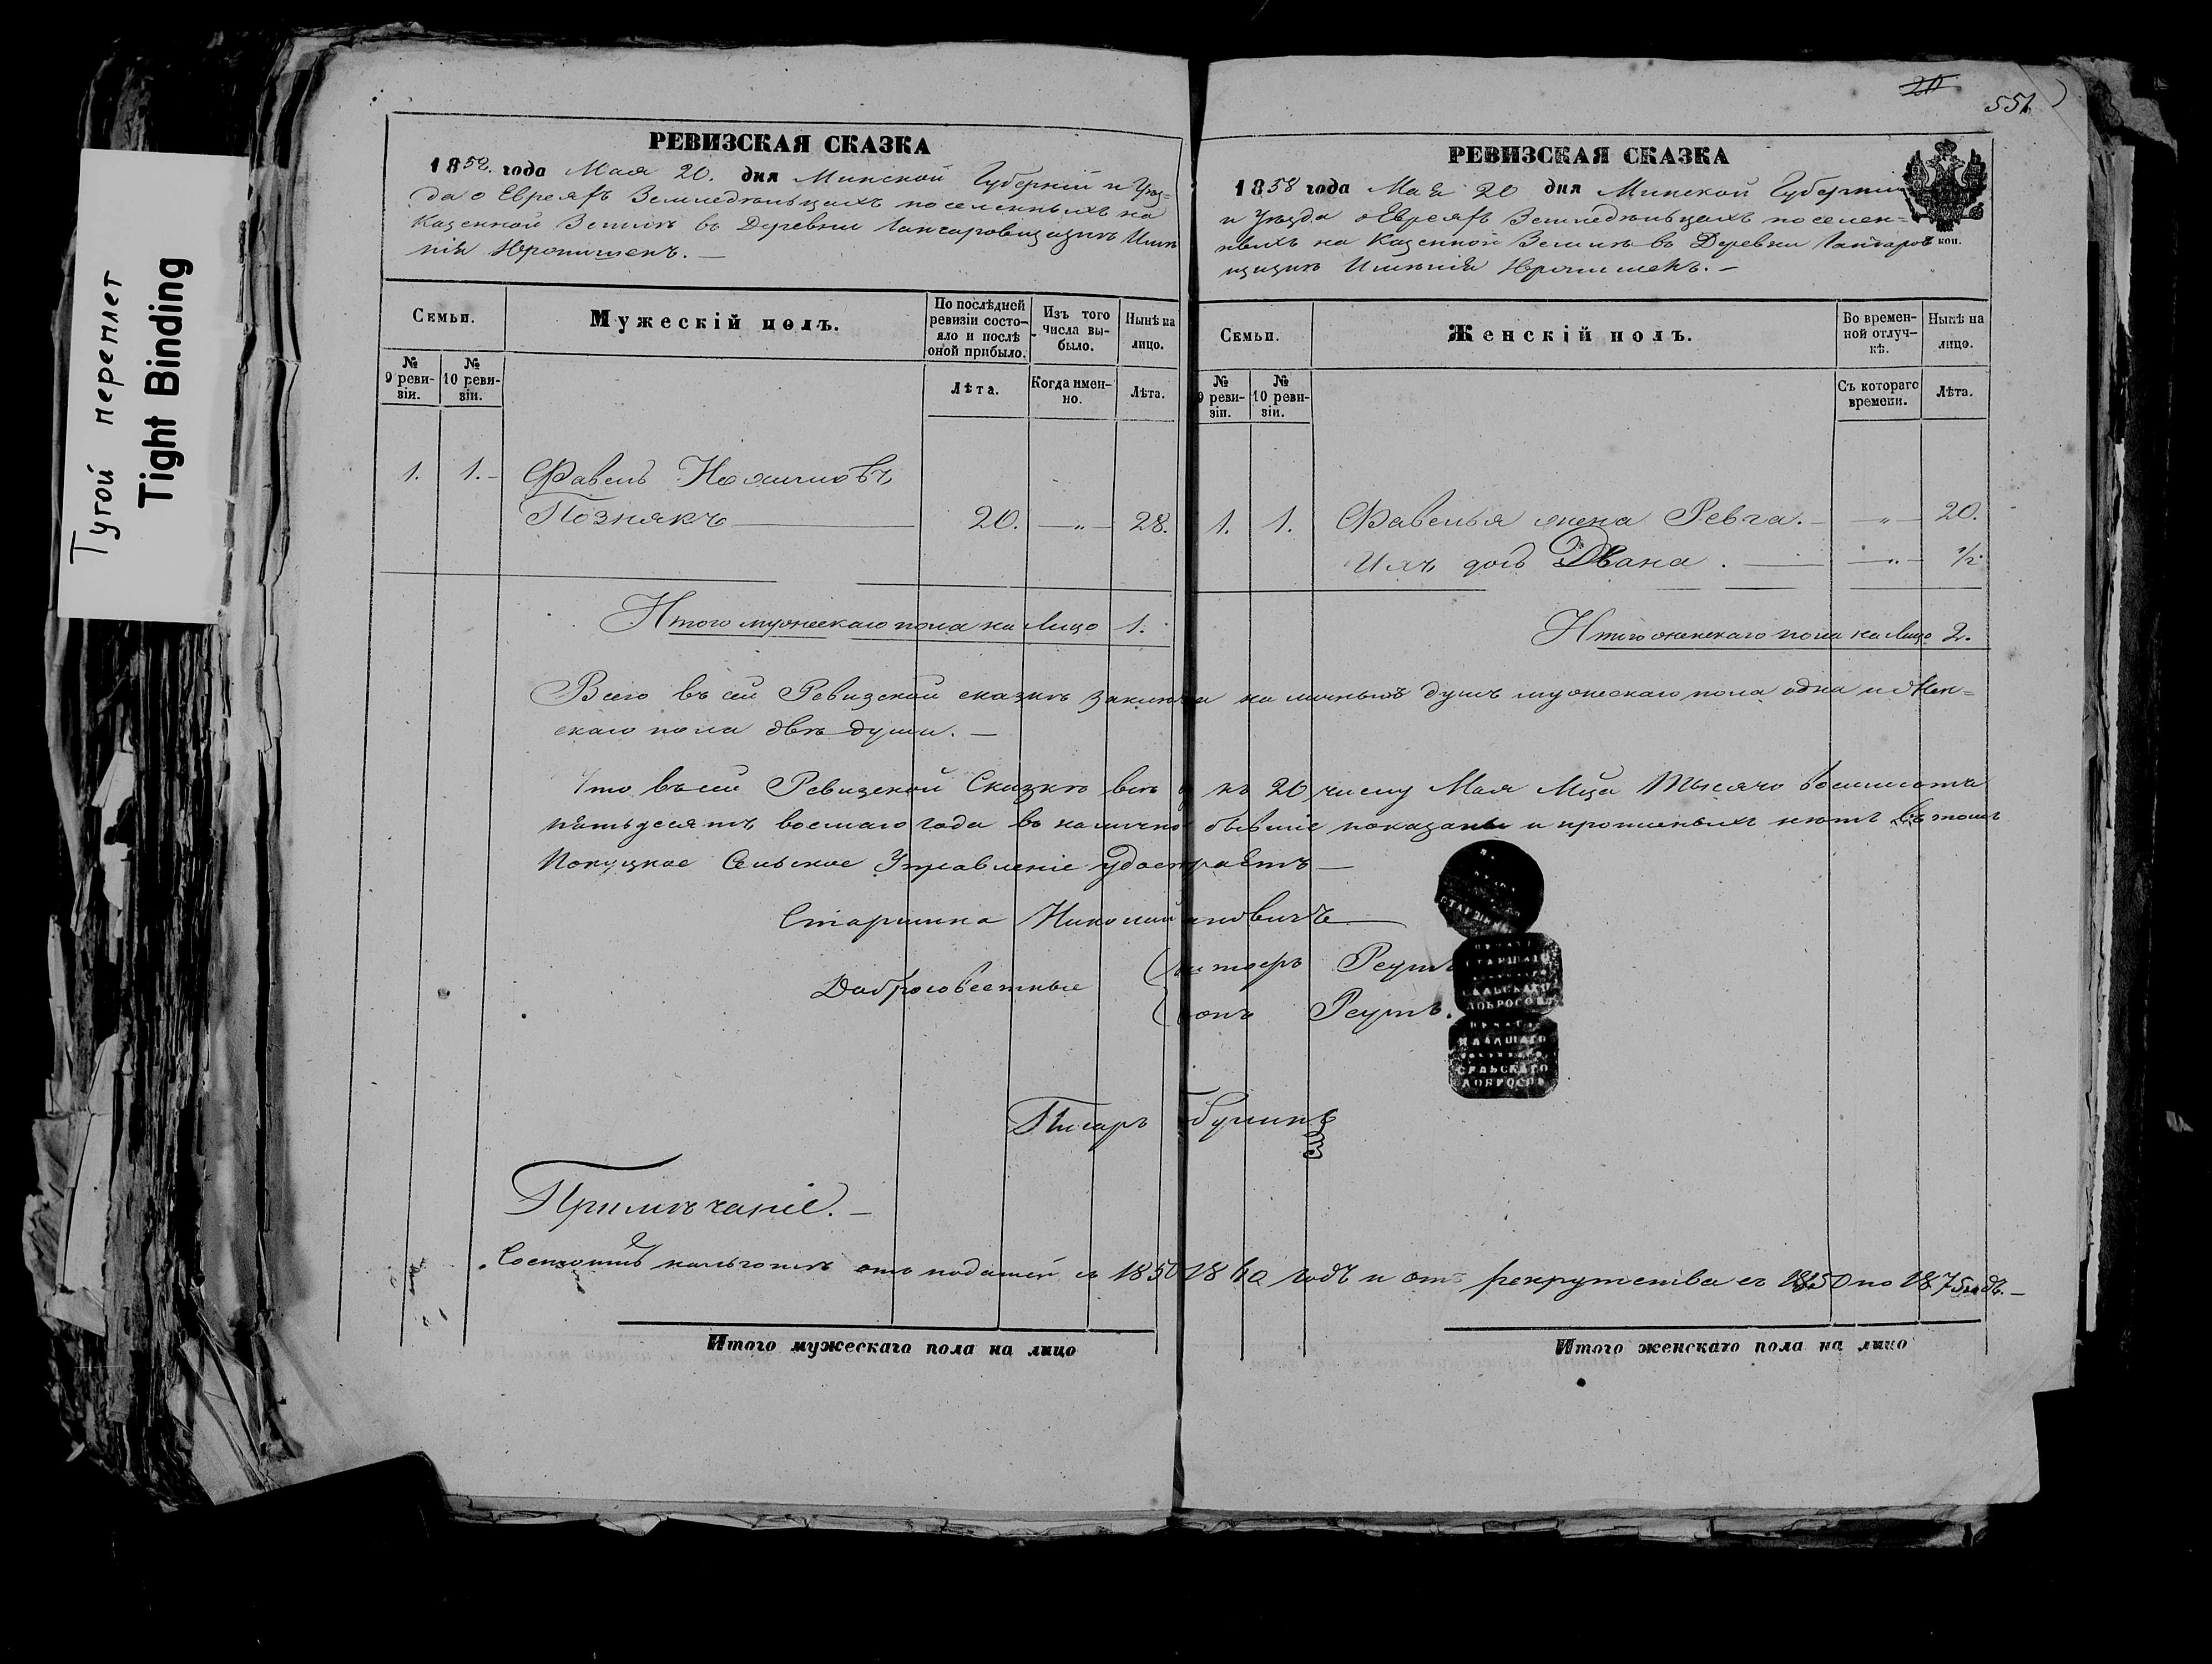 Тугой переплет
Tight Binding
РЕВИЗСКАЯ СКАЗКА
1858. года Мая 20. дня Минской Губерніи и Уѣз-
да о Евреяхъ Земледѣльцахъ поселенныхъ на
Казенной Землѣ въ Деревни Имѣ
нія
Семьи.
Мужескій полъ.
По послѣдней ревизіи состо-
яло и послѣ
оной прибыло.
Изъ того
числа вы-
было.
Нынѣ на
лицо.
№
9 реви-
зіи.
№
10 реви-
зіи.
Лѣта.
Когда имен-
но.
Лѣта.
1. 1.- Фавель
Познякъ 20. —„— 28.
Итого мужескаго пола на лицо 1.
20
551
РЕВИЗСКАЯ СКАЗКА
1858 года Мая 20 дня Минской Губерніи
и Уѣзда о Евреяхъ Земледѣльцахъ поселен=
ныхъ на Казенной Землѣ въ Деревни
Имѣнія
коп.
Семьи.
Женскій полъ.
Во времен-
ной отлуч-
кѣ.
Нынѣ на
лицо.
№
9 реви-
зіи.
№
10 реви-
зіи.
Съ котораго
времени.
Лѣта.
1. 1. Фавелья жена —„— 20.
Ихъ дочь —„— 1/2
Итого женскаго пола на лицо 2.
Всего въ сей Ревизской сказкѣ наличныхъ душъ мужескаго пола одна и жен=
скаго пола двѣ души. —
Что въ сей Ревизской Сказкѣ всѣ къ 20 числу Мая Мца Тысячо восемьсотъ
пятьдесятъ восмаго года въ налично бывшіе показаны и прописныхъ нѣтъ въ томъ
Сельское Управленіе удостряетъ —
Старшина
Добросовестные Реутъ
Реутъ.
СТАРШИН
СТАРШАГО
СЕЛЬСКАГО
ДОБРОСОВ
МЛАДШАГО
СЕЛЬСКАГО
ДОБРОСОВ
Писарь
Примѣчаніе. —
Состоитъ на льготѣ отъ податей съ 1850 1860 годъ и отъ рекрутства съ 1850 по 1875 годъ. —
Итого мужескаго пола на лицо
Итого женскаго пола на лицо